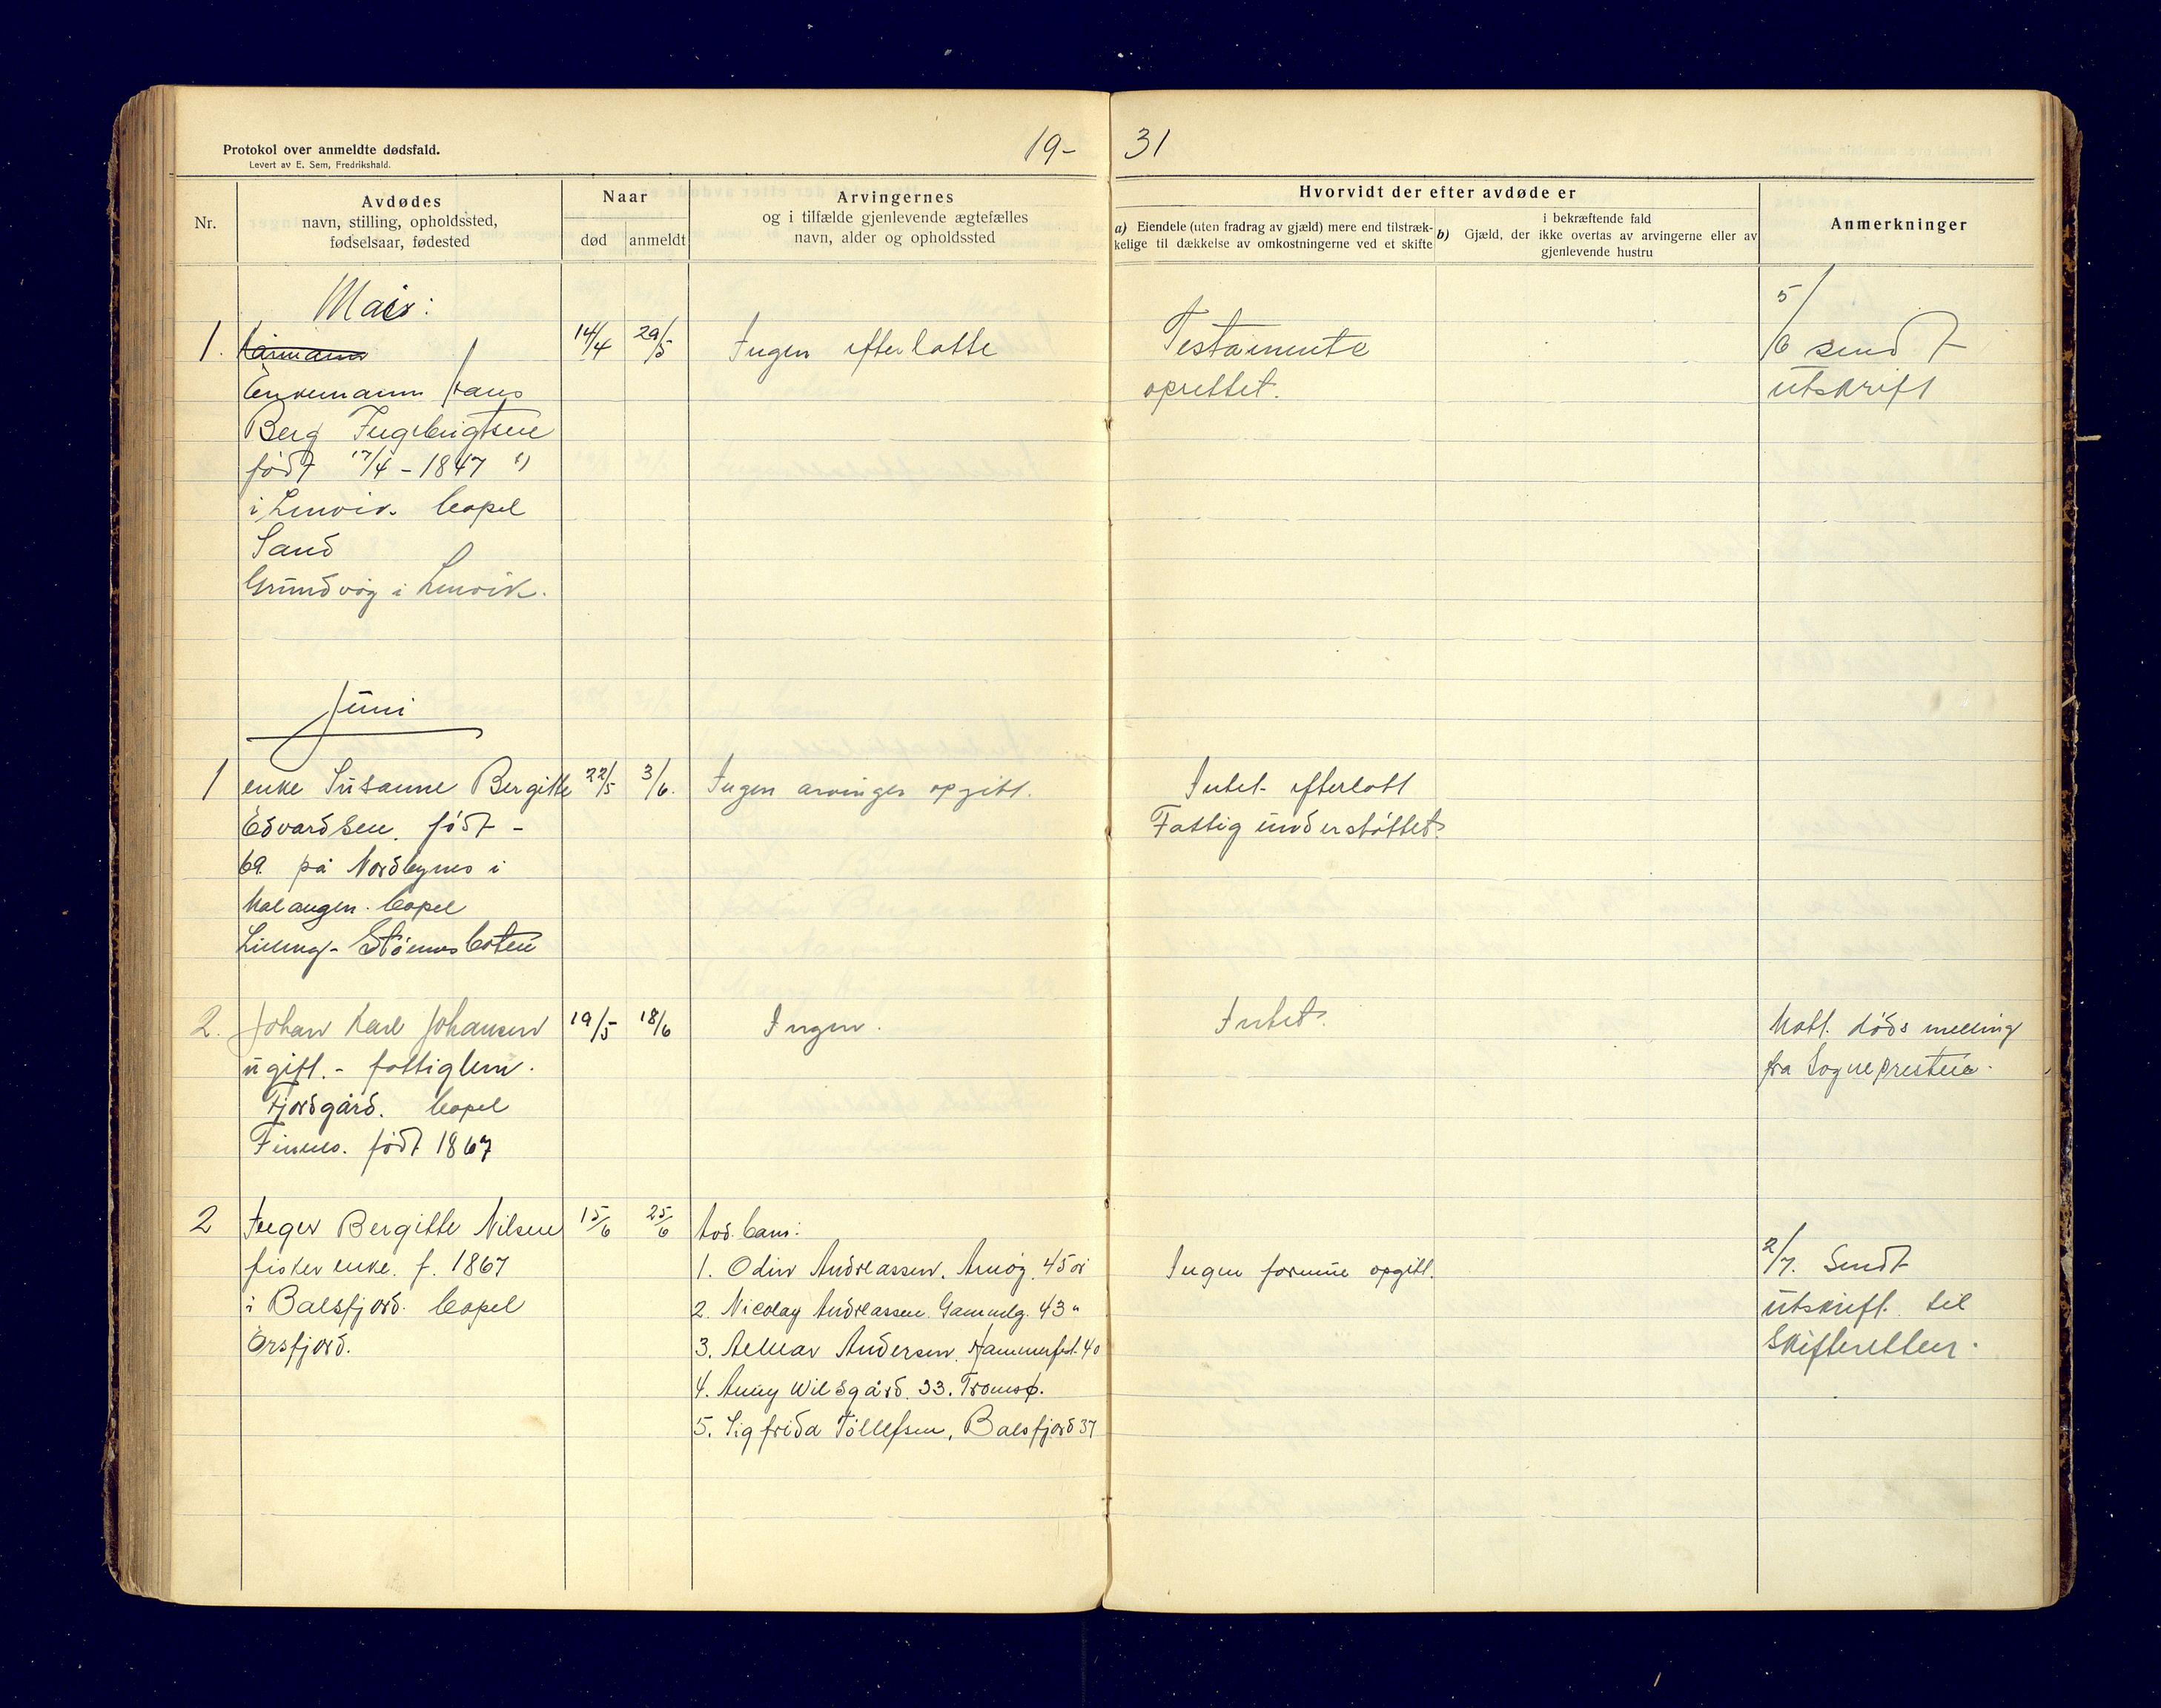 Protokol over anmeldte dødsfald.
Levert av E. Sem, Fredrikshald.
19- 31
Nr.
Avdødes
navn, stilling, opholdssted,
fødselsaar, fødested
Naar
død anmeldt
Arvingernes
og i tilfælde gjenlevende ægtefælles
navn, alder og opholdssted
Hvorvidt der efter avdøde er
a) Eiendele (uten fradrag av gjæld) mere end tilstræk-
kelige til dækkelse av omkostningerne ved et skifte
b) i bekræftende fald
Gjæld, der ikke overtas av arvingerne eller av
gjenlevende hustru
Anmerkninger
Mai:
1. 14/4 29/5 Ingen efterlatte Testamente 5/6 send t
Enkemann Hans oprettet. utskrift
Berg Ingebrigtsen
født 17/4 - 1847
i Lenvik. bopel
Sand
Grundvåg i Lenvik.
Juni
1 enke Susanne Bergitte 22/5 3/6. Ingen arvinger opgitt. Intet efterlatt
Edvardsen. født - Fattig understøttet.
69 på Nordbynes i
Malangen. bopel
Stønnesbotn
2. Johan Karl Johansen 19/5 18/6 Ingen. Intet. Mott. dødsmelling
ugift. - fattiglem. fra Sognepresten.
Fjordgård. bopel
Finnes. født 1867
2 Inger Bergitte Nilsen 15/6 25/6 Avd. barn:
fisker enke. f. 1867 1. Odin Andreassen. 45 år Ingen formue opgitt. 2/7. Sendt
i Balsfjord. bopel 2. Nicolay Andreassen. Gammelg. 43 " utskrift til
Ørsfjord. 3. Andersen. Hammerfest. 40 Skifteretten.
4. Anny Wilsgård. 33. Tromsø.
5. Sigfrida Tollefsen, Balsfjord 37